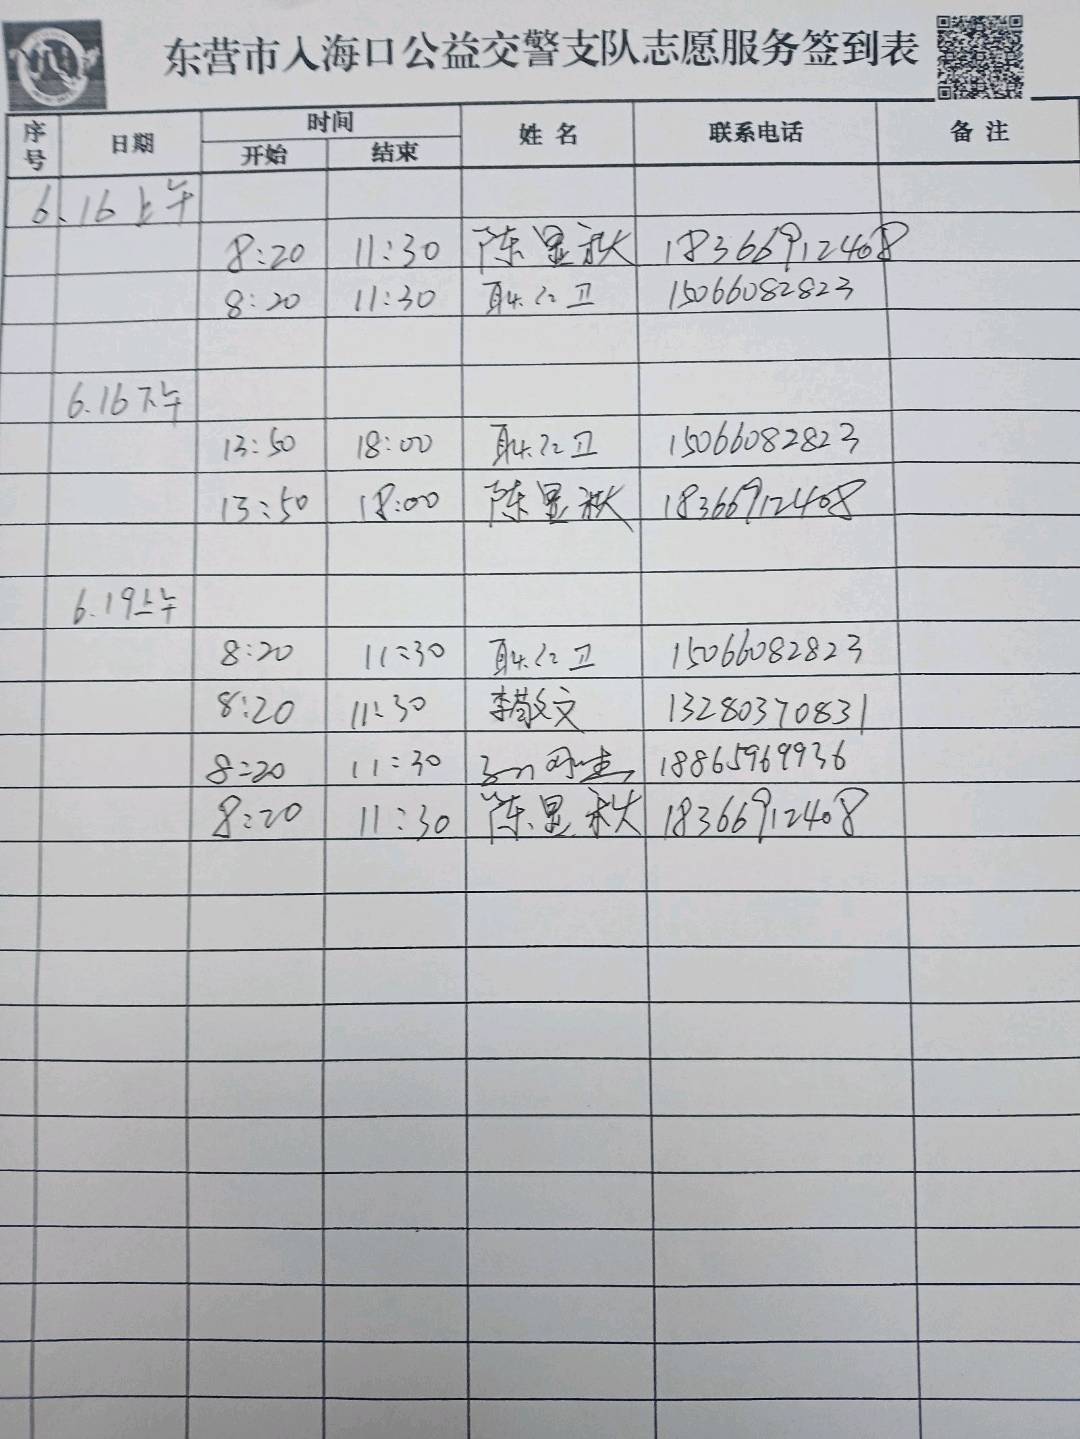 东营市入海口公益交警支队志愿服务签到表
序号 日期 时间 姓名 联系电话 备注
开始 结束
6.16上午
8:20 11:30 陈显秋 18366912408
8:20 11:30 耿仁卫 15066082823
6.16下午
13:50 18:00 耿仁卫 15066082823
13:50 18:00 陈显秋 18366912408
6.19上午
8:20 11:30 耿仁卫 15066082823
8:20 11:30 李敬文 13280370831
8:20 11:30 18865969936
8:20 11:30 陈显秋 18366912408